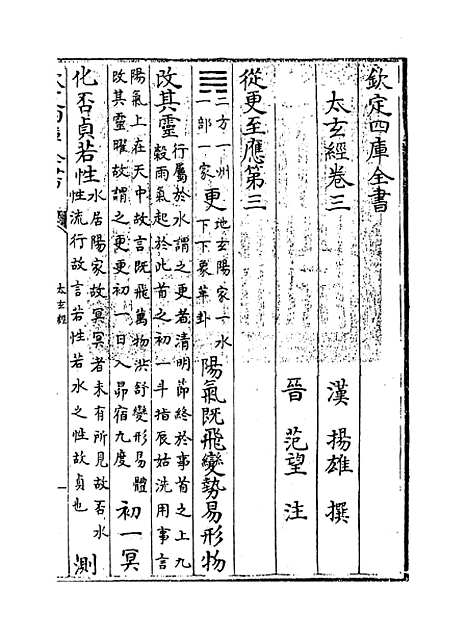 欽定四庫全書
太玄經卷三
漢 揚雄 撰
晉 范望 注
從更至應第三
三方一州
一部一家
更
地玄陽家一水
下下象革卦
陽氣既飛變勢易形物
改其靈
行屬於水謂之更者清明節終於事首之上九
穀雨氣起於此首之初一斗指辰姑洗用事言
陽氣上在天中故言既飛萬物洪舒變形易體
改其靈曜故謂之更更初一日入昴宿九度
初一冥
化否貞若性
水居陽家故冥冥者未有所見故否水
性流行故言若性若水之性故貞也
測
太玄經
一